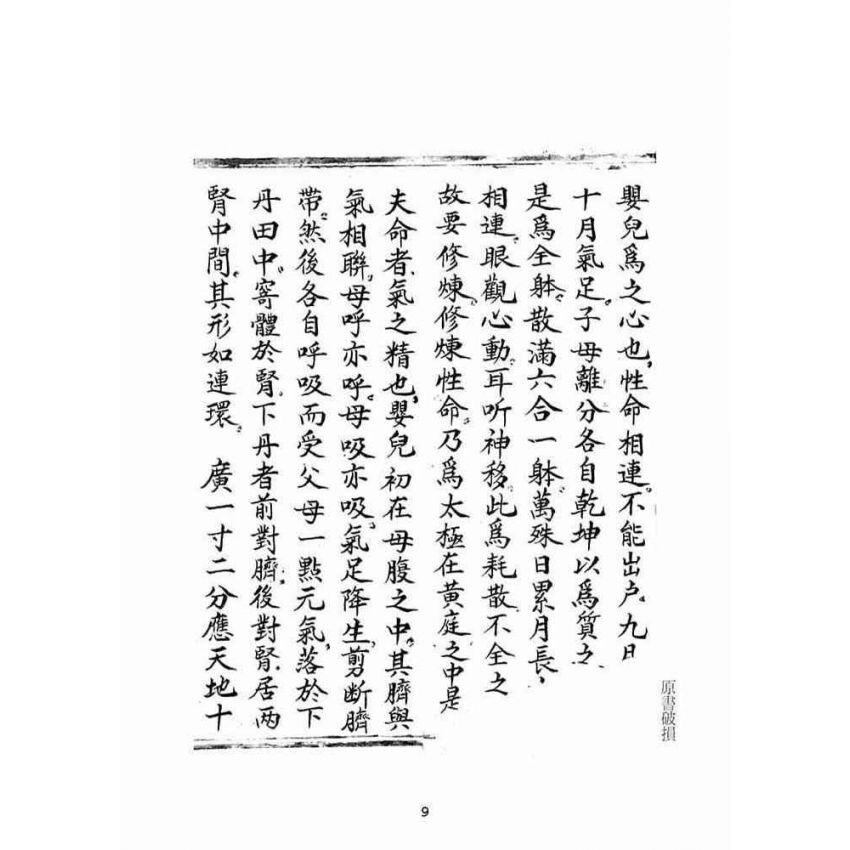 嬰兒爲之心也,性命相連。不能出户。九日
十月氣足。子母離分各自乾坤以爲質之
是爲全躰。散滿六合一躰。萬殊日累月長,
相連。眼觀心動。耳听神移。此爲耗散不全之
故要修煉。修煉性命。乃爲太極在黄庭之中是
夫命者。氣之精也,嬰兒初在母腹之中。其臍與
氣相聯,母呼亦呼。母吸亦吸。氣足降生,剪断臍
帶。然後各自呼吸而受父母一點元氣,落於下
丹田中。寄體於腎。下丹者前對臍。後對腎。居两
腎中間。其形如連環。 廣一寸二分應天地十
原書破損
9